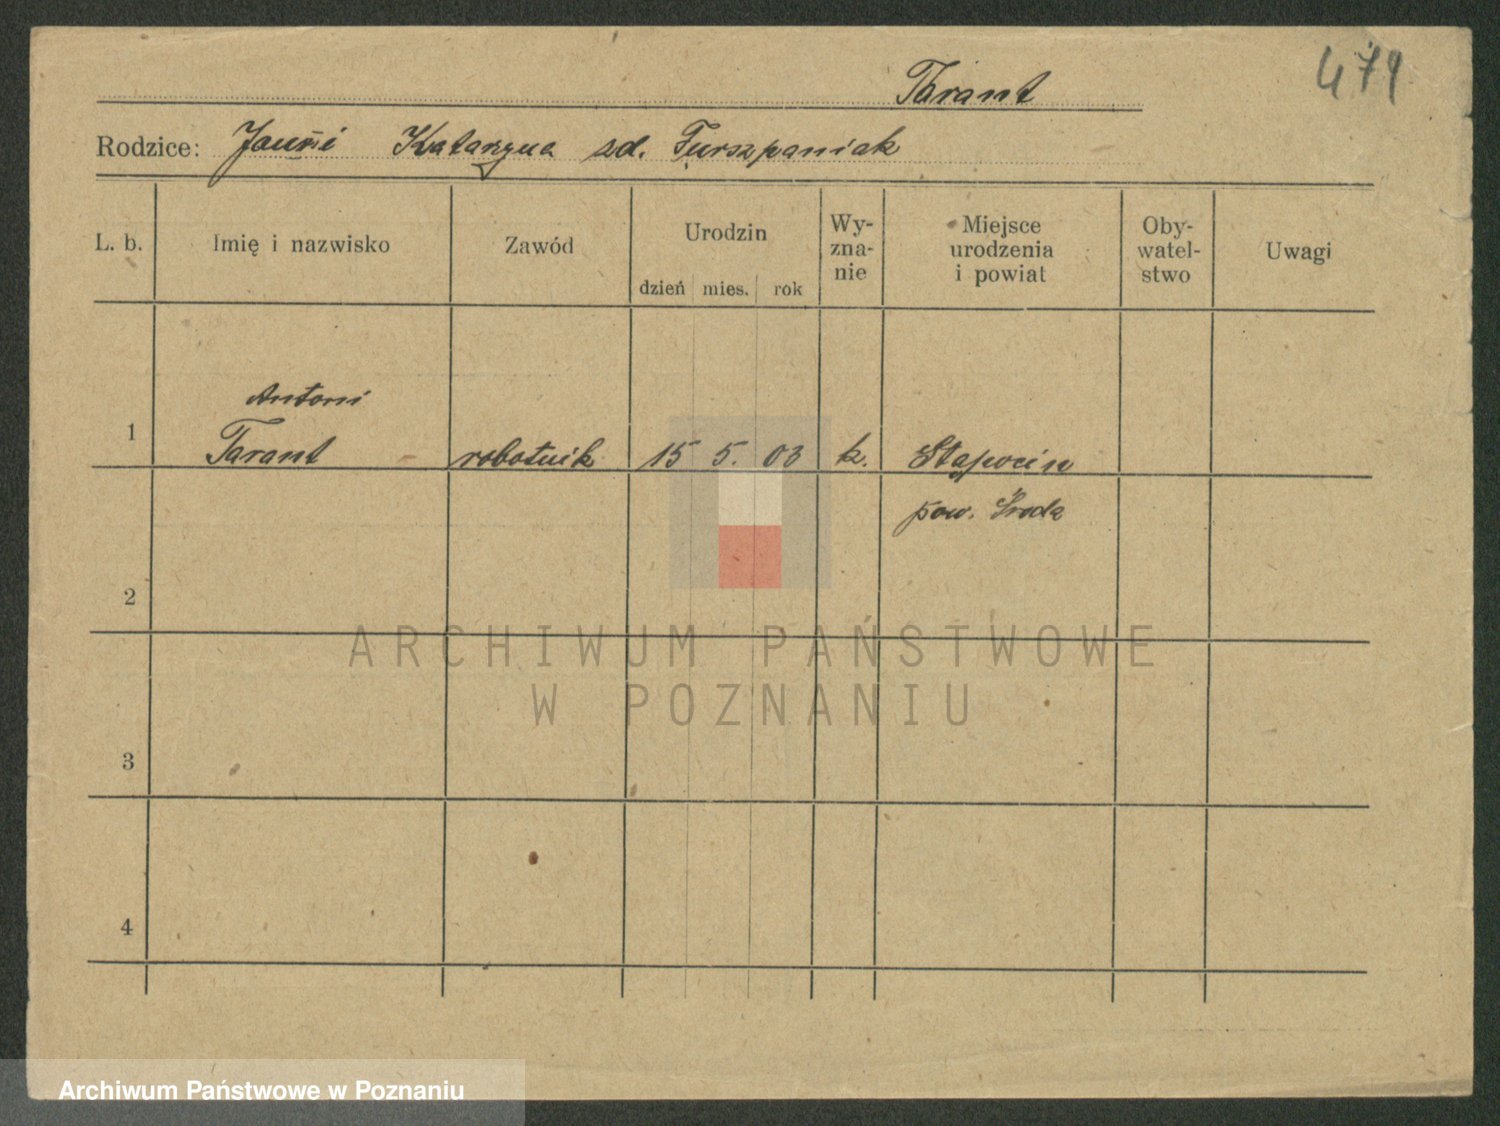 471
Tarant
Rodzice: Katarzyna zd. Furszpaniak
L. b. Imię i nazwisko Zawód Urodzin dzień mies. rok Wy-
zna-
nie Miejsce
urodzenia
i powiat Oby-
watel-
stwo Uwagi
Antoni
1 Tarant robotnik 15 5. 03 k.
pow. Środa
2
ARCHIWUM PAŃSTWOWE
W POZNANIU
3
4
Archiwum Państwowe w Poznaniu